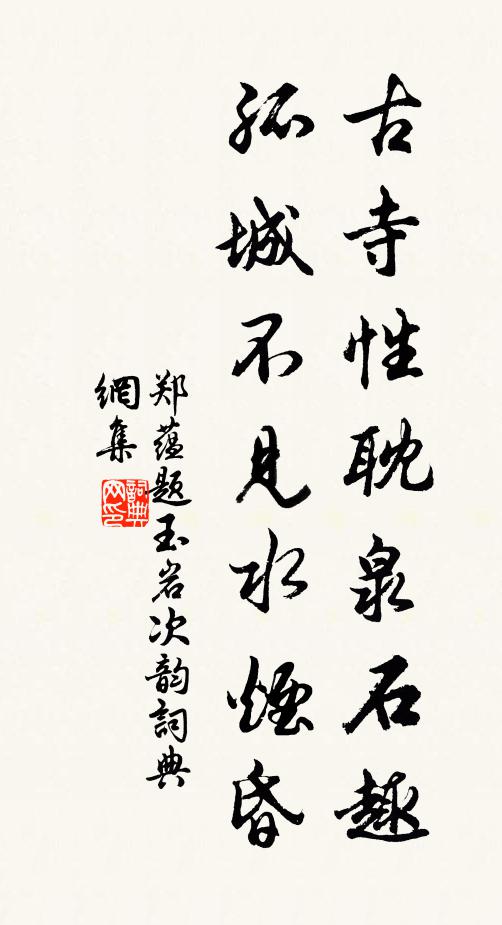 古寺性耽泉石趣
孤城不见水煙昏
郑蕴题玉岩次韵詞典
網集
詞典網印